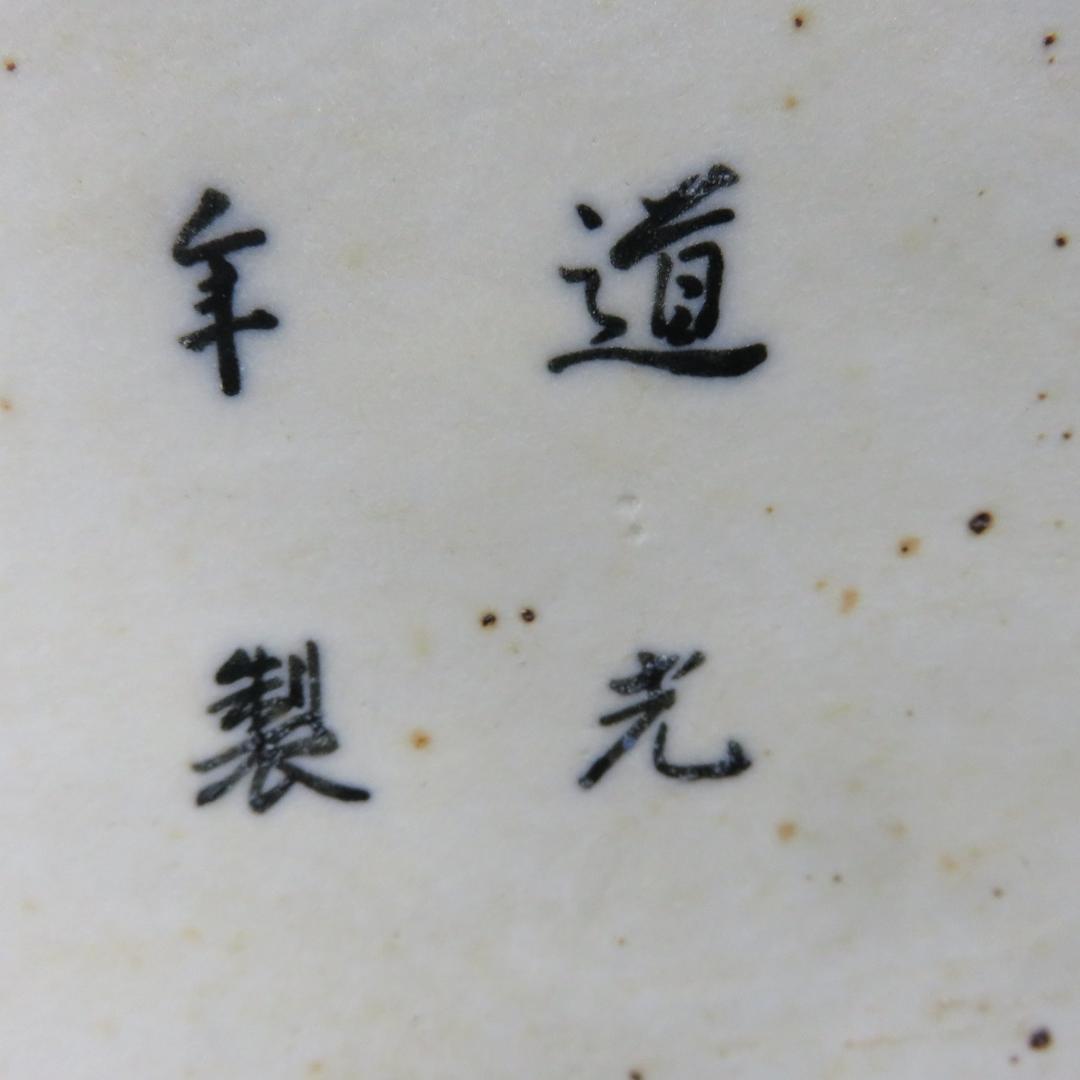 道光
年製